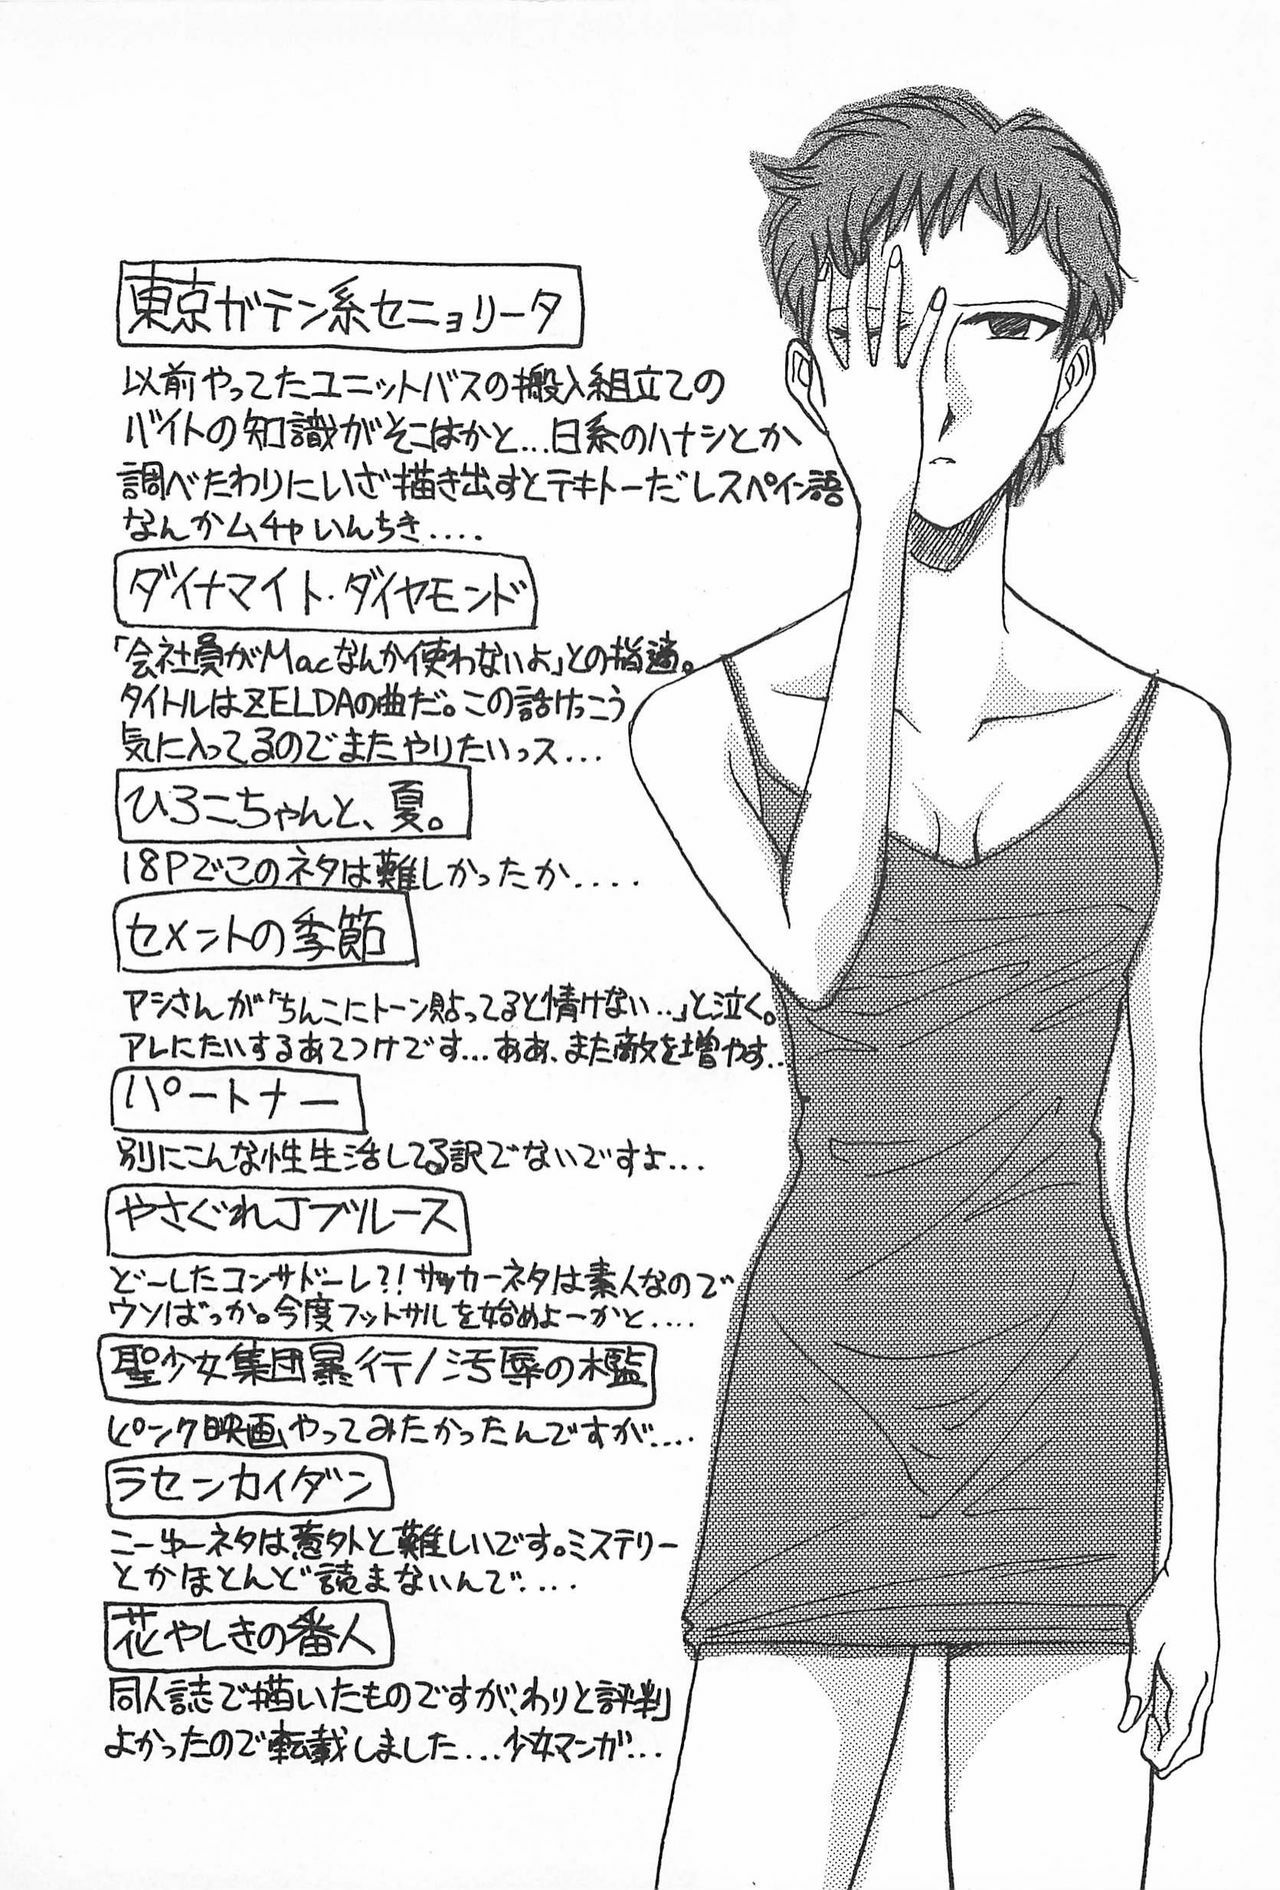 東京ガテン系セニョリータ
以前やってたユニットバスの搬入組立ての
バイトの知識がそこはかと...日系のハナシとか
調べたわりにいざ描き出すとテキトーだしスペイン語
なんかムチャいんちき....
ダイナマイト・ダイヤモンド
「会社員がMacなんか使わないよ」との指摘。
タイトルはZELDAの曲だ。この話けっこう
気に入ってるのでまたやりたいっス...
ひろこちゃんと、夏。
18Pでこのネタは難しかったか....
セメントの季節
アシさんが「ちんこにトーン貼ってると情けない...」と泣く。
アレにたいするあてつけです...ああ、また敵を増やす..
パートナー
別にこんな性生活してる訳でないですよ...
やさぐれJブルース
どーしたコンサドーレ?!サッカーネタは素人なので
ウソばっか。今度フットサルを始めよーかと....
聖少女集団暴行/汚辱の檻
ピンク映画、やってみたかったんですが....
ラセンカイダン
こーゆーネタは意外と難しいです。ミステリー
とかほとんど読まないんで....
花やしきの番人
同人誌で描いたものですが、わりと評判
よかったので転載しました...少女マンガ...